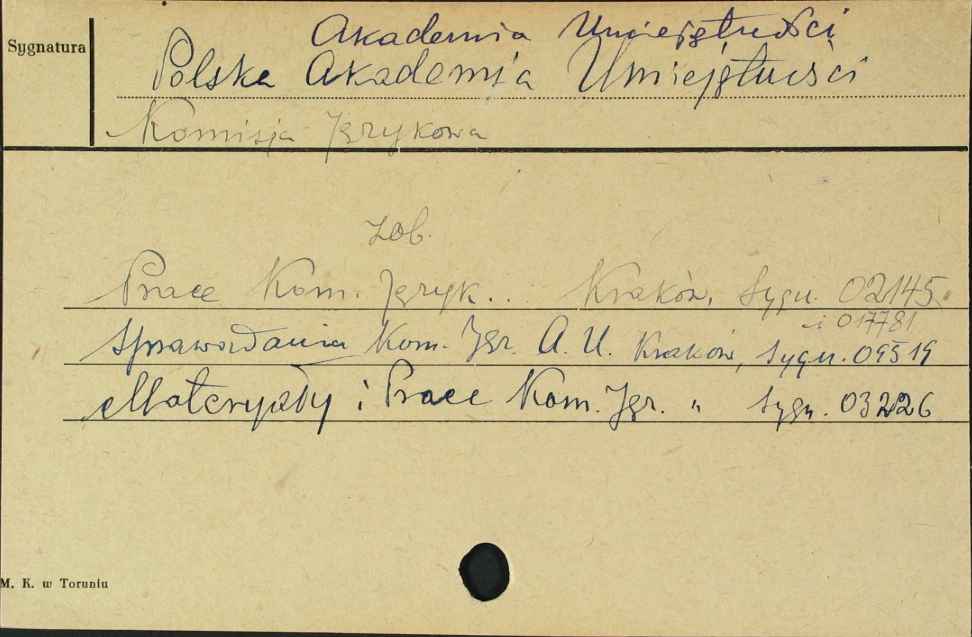 Akademia Umiejętności
Sygnatura
Polska Akademia Umiejętności
Komisja Językowa
zob.
Prace Kom. Język... Kraków, Sygn. 02145
i 017781
Sprawozdania Kom. Jęz. A. U. Kraków, Sygn. 09519
Materyały i Prace Kom. Jęz. " Sygn. 03226
M. K. w Toruniu